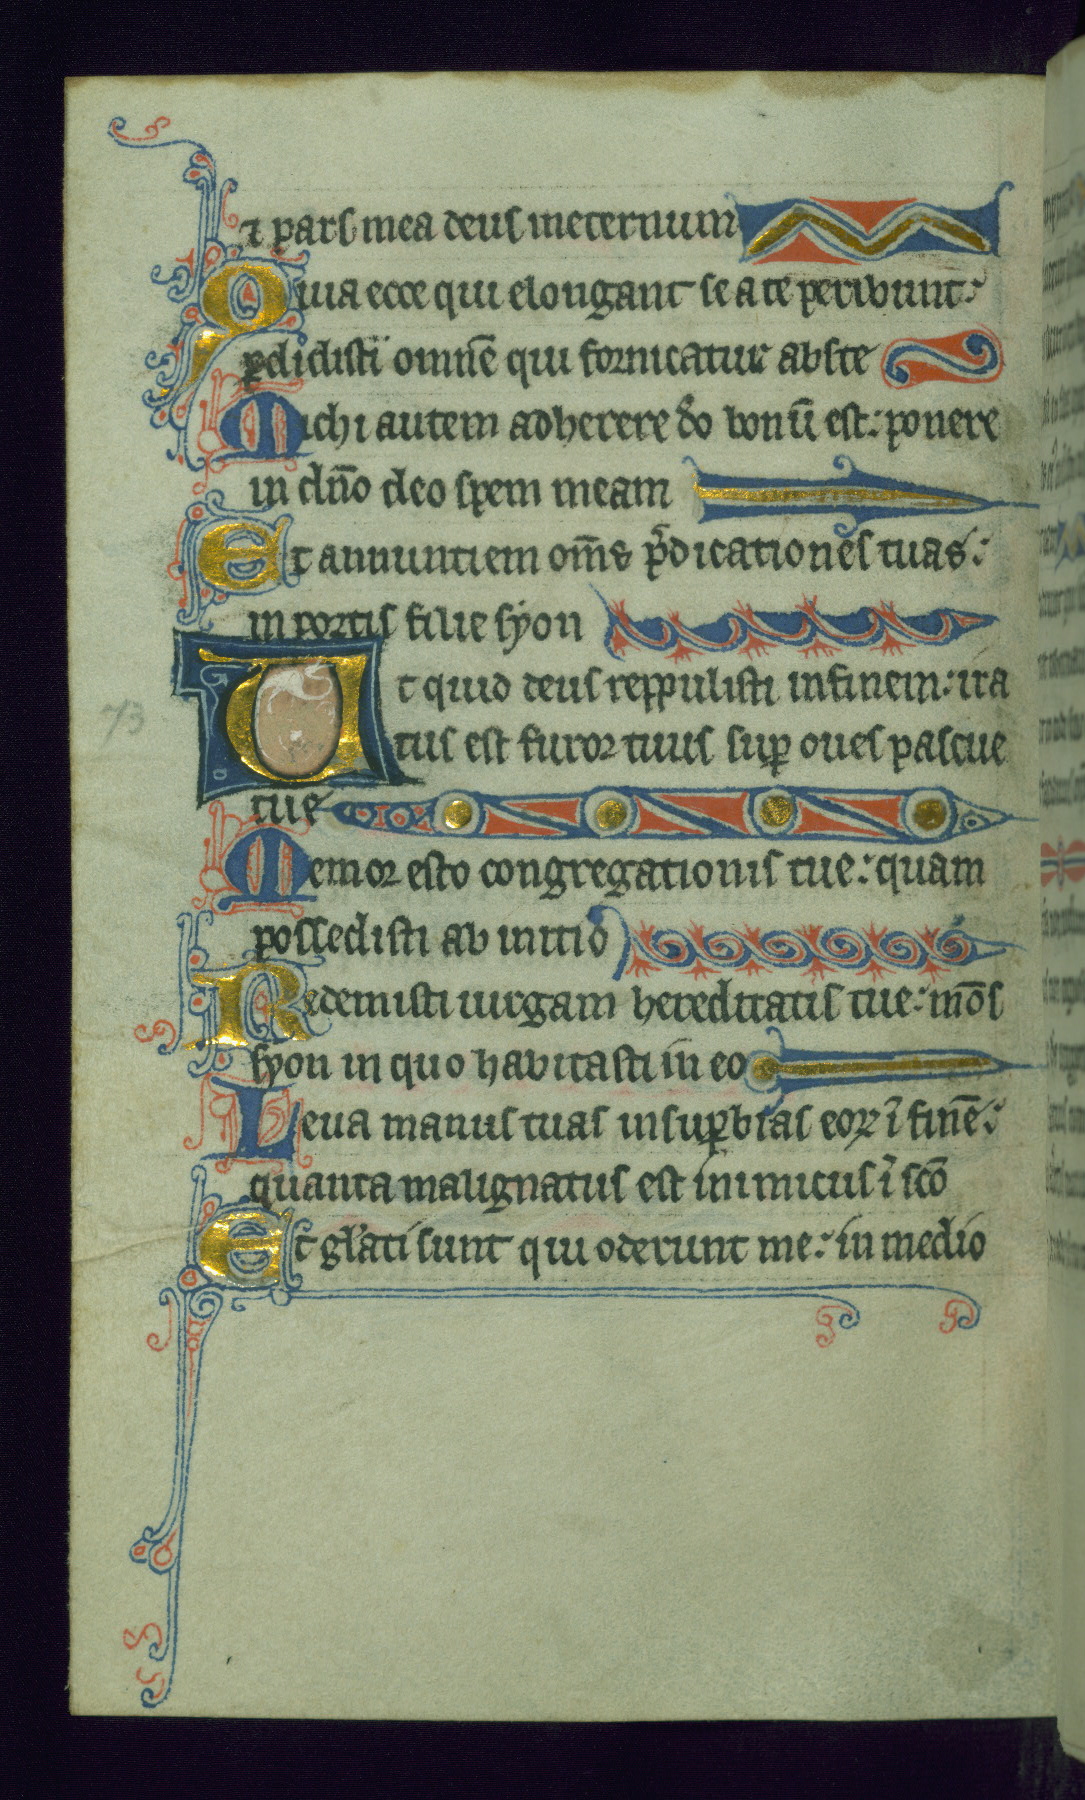 ⁊ pars mea deus in eternum
Quia ecce qui elongant se a te peribunt:
ꝑdidisti omnē qui fornicatur abs te
Michi autem adherere do bonū est: ponere
in dn̄o deo spem meam
Et annuntiem om̄s p̄dicationes tuas:
in portis filie syon
Ut quid deus reppulisti in finem: ira
tus est furor tuus suꝑ oues pascue
73
tue
Memor esto congregationis tue: quam
possedisti ab initio
Redemisti uirgam hereditatis tue: mōs
syon in quo habitasti in eo
Leua manus tuas in suꝑbias eoꝝ ī finē:
quanta malignatus est inimicus ī sc̄o
Et gl'ati sunt qui oderunt me: in medio